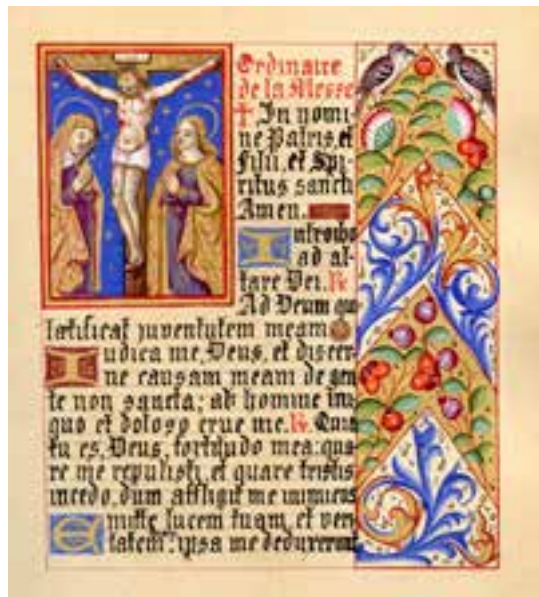 Ordinaire
de la Messe
In nomi-
ne Patris, et
filii, et Spi-
ritus sancti
Amen.
Introibo
ad al-
tare Dei. ℟.
Ad Deum qui
lætificat juventutem meam
Iudica me, Deus, et discer-
ne causam meam de gen
te non sancta; ab homine ini
quo et doloso erue me. ℟. Quia
tu es, Deus, fortitudo mea: qua
re me repulisti, et quare tristis
incedo, dum affligit me inimicus
Emitte lucem tuam et veri
tatem: ipsa me deduxerunt